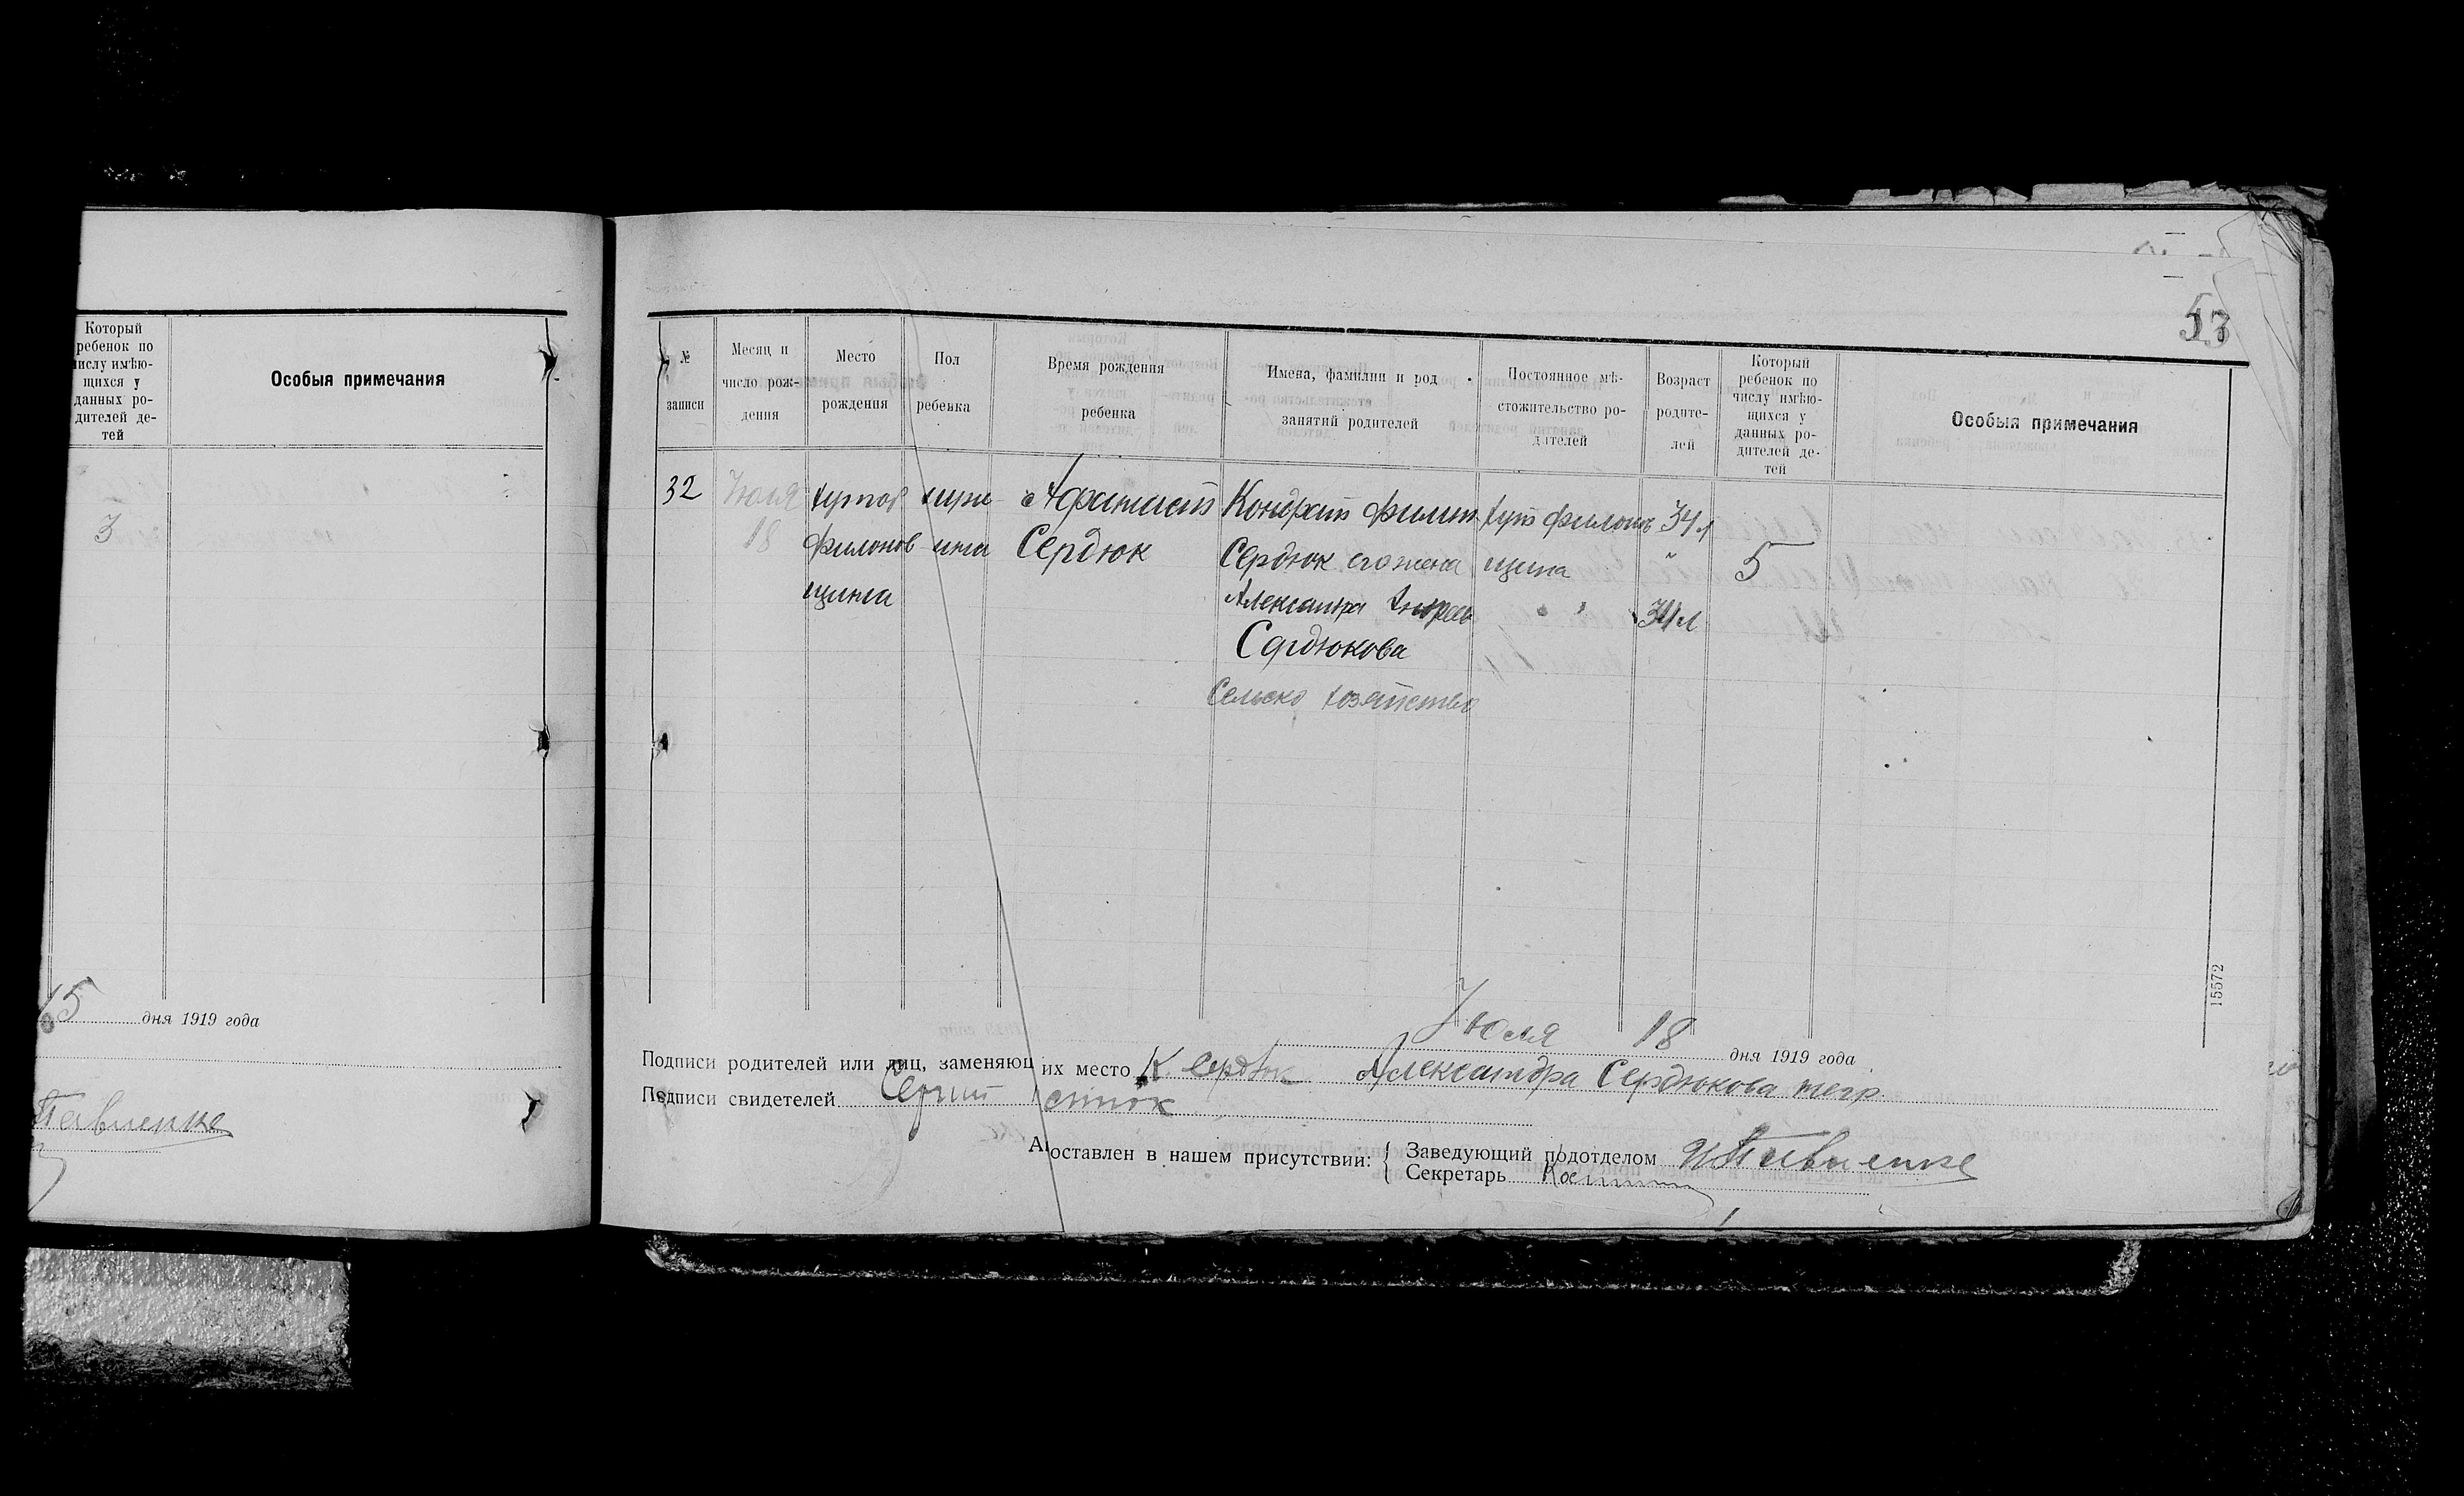 Который
ребенок по
числу имѣю-
щихся у
данных ро-
дителей де-
тей
Особыя примечания
3
15 дня 1919 года
Павленке
53
№
записи
Месяц и
число рож-
дения
Место
рождения
Пол
ребенка
Время рождения
ребенка
Имена, фамилии и род
занятий родителей
Постоянное мѣ-
стожительство ро-
дителей
Возраст
родите-
лей
Который
ребенок по
числу имѣю-
щихся у
данных ро-
дителей де-
тей
Особыя примечания
32
Июля
18
хутор
Филонов
щина
Афанасий
Сердюк
Кондрат Филип
Сердюк его жена
Александра Андрее
Сердюкова
Сельско хозяйство
хут Филонов
щина
" "
34 л
"
34 л
5
15572
Июля 18 дня 1919 года
Подписи родителей или лиц, заменяющих место К. Сердюк Александра Сердюкова негр.
Подписи свидетелей Сергий
Акт составлен в нашем присутствии:
Заведующий подотделом И Павленке
Секретарь